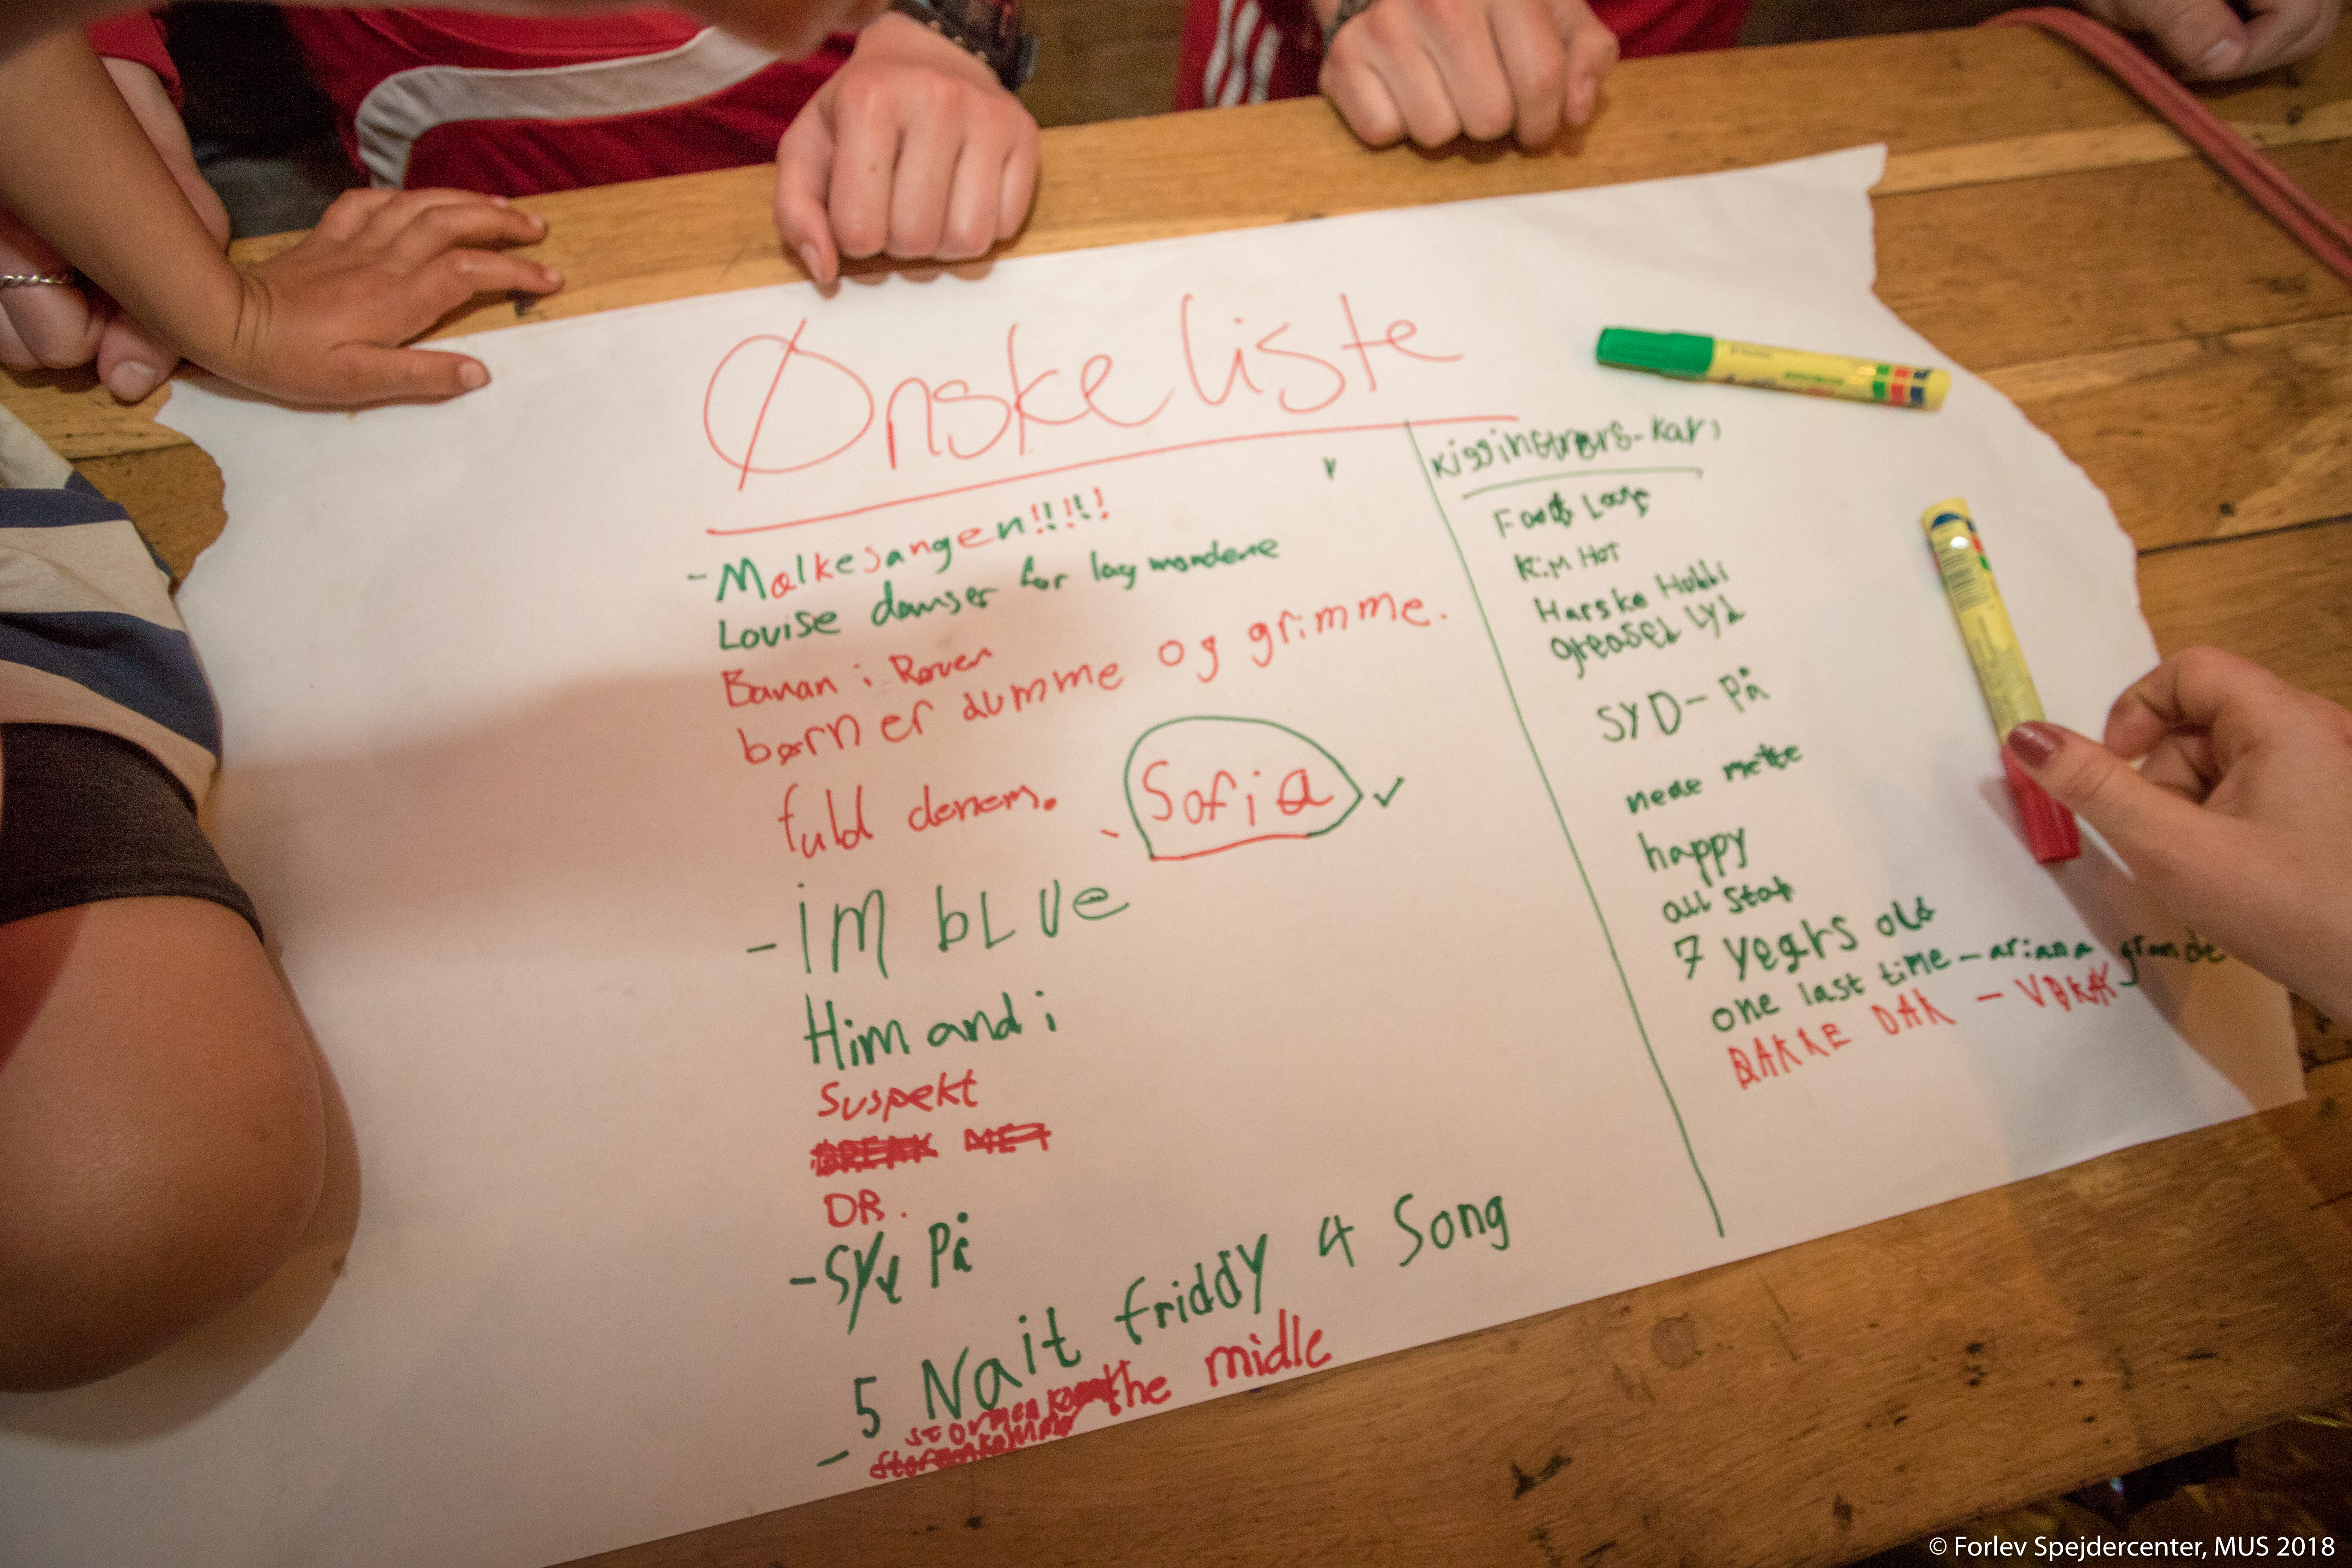 Ønskeliste
- Malkesangen!!!!!
Louise danser for lagmændene
Banan i Røven
børn er dumme og grimme.
fuld
Sofia ✓
- im bLUe
Him and i
Suspekt
BREAK
DR.
- Syd På
5 Nait friddy 4 Song
- the midle
Kim Hot
Harske Hubbi
greased Lyd
SYD - På
mette
happy
all Star
7 years old
one last time - ariana grande
BAKKE DAK -
© Forlev Spejdercenter, MUS 2018